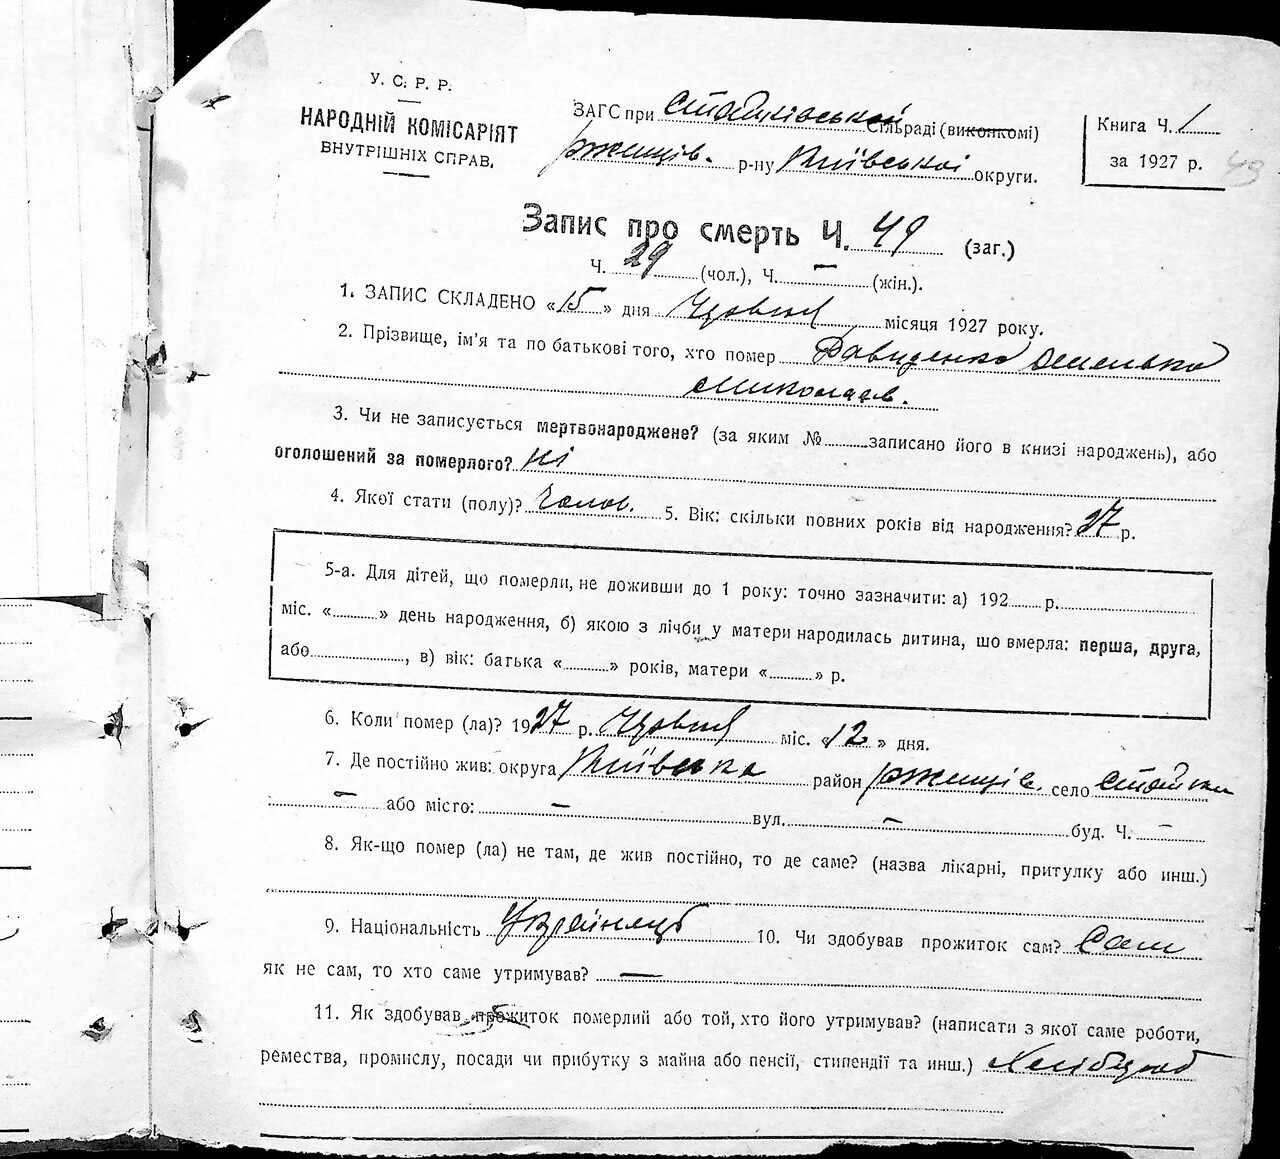 У. С. Р. Р.
НАРОДНІЙ КОМІСАРІЯТ
ВНУТРІШНІХ СПРАВ.
ЗАГС при Стайківській сільраді (виконкомі)
Ржищів. р-ну Київської округи.
Книга Ч. 1
за 1927 р.
49
Запис про смерть Ч. 49 (заг.)
Ч. 29 (чол.), Ч. – (жін.).
1. ЗАПИС СКЛАДЕНО «15» дня Червня місяця 1927 року.
2. Прізвище, ім'я та по батькові того, хто помер Давиденко Омелько
Миколаєв.
3. Чи не записується мертвонароджене? (за яким № записано його в книзі народжень), або
оголошений за померлого? ні
4. Якої стати (полу)? Чолов. 5. Вік: скільки повних років від народження? 27 р.
5-а. Для дітей, що померли, не доживши до 1 року: точно зазначити: а) 192 р.
міс. « » день народження, б) якою з лічби у матери народилась дитина, що вмерла: перша, друга,
або , в) вік: батька « » років, матери « » р.
6. Коли помер (ла)? 1927 р. Червня міс. «12» дня.
7. Де постійно жив: округа Київська район Ржищів. село Стайки
– або місто: – вул. – буд. Ч. –
8. Як-що помер (ла) не там, де жив постійно, то де саме? (назва лікарні, притулку або инш.)
9. Національність Українець 10. Чи здобував прожиток сам? Сам
як не сам, то хто саме утримував? —
11. Як здобував прожиток померлий або той, хто його утримував? (написати з якої саме роботи,
ремества, промислу, посади чи прибутку з майна або пенсії, стипендії та инш.) Хлібороб